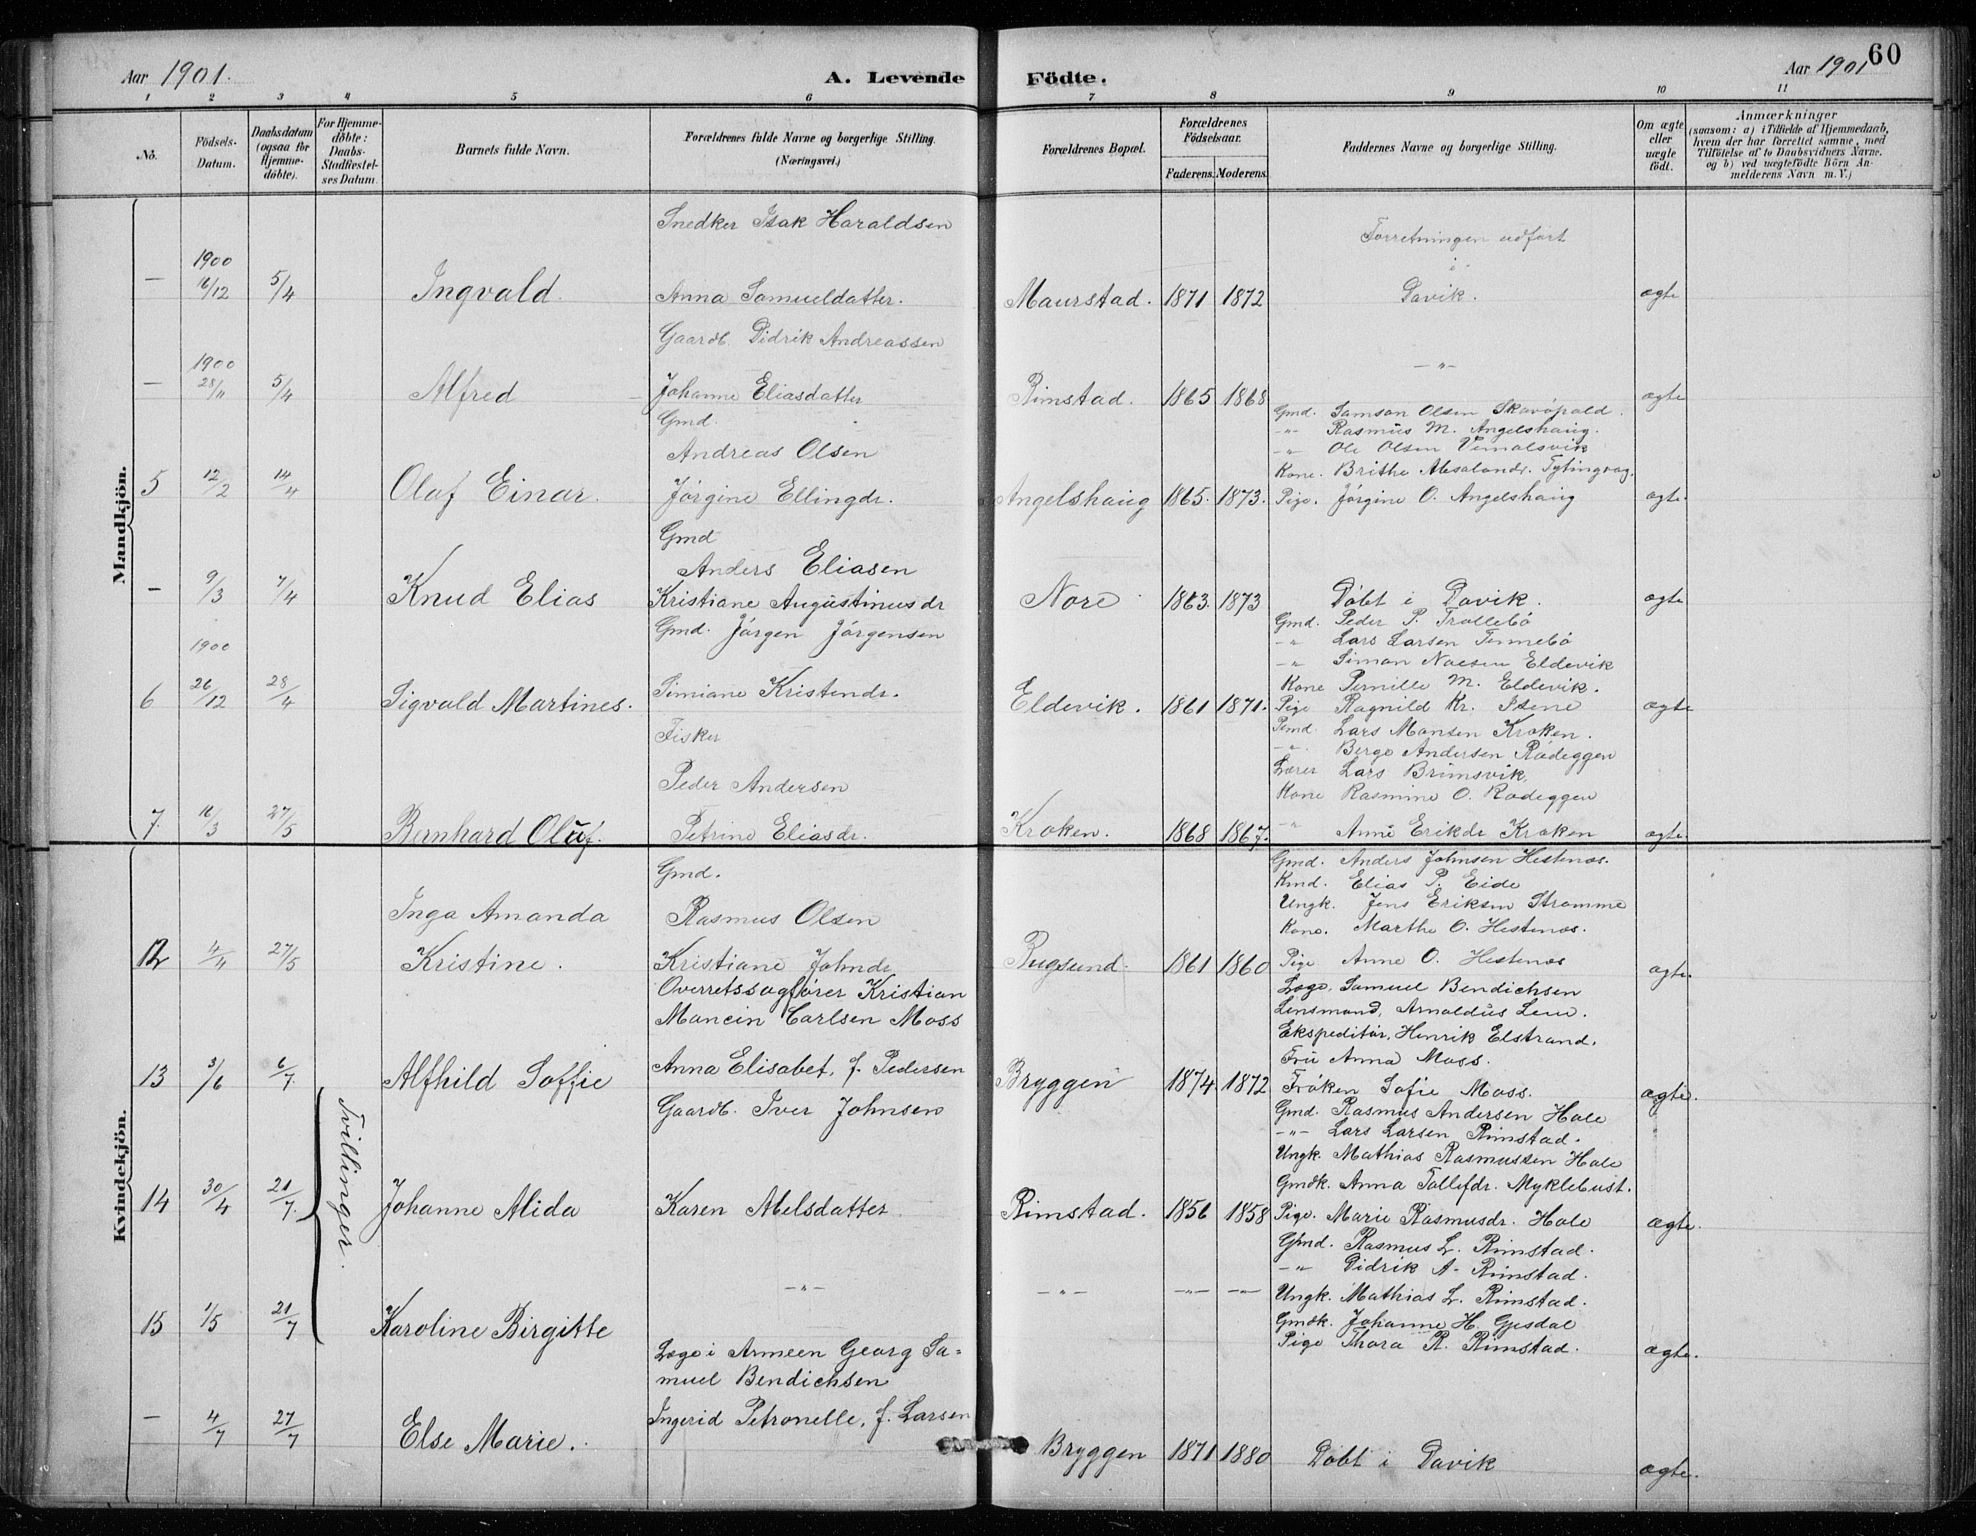 Aar 1901.
A. Levende Födte.
Aar 1901
60
1 2 3 4 5 6 7 8 9 10 11
No.
Födsels-Datum.
Daabsdatum (ogsaa for Hjemme-döbte).
For Hjemme-döbte: Daabs-Stadfæstel-ses Datum.
Barnets fulde Navn.
Forældrenes fulde Navne og borgerlige Stilling. (Næringsvei.)
Forældrenes Bopæl.
Forældrenes Födselsaar.
Faderens. Moderens.
Faddernes Navne og borgerlige Stilling.
Om ægte eller uægte födt.
Anmærkninger
(saasom: a) i Tilfælde af Hjemmedaab,
hvem der har forrettet samme, med
Tilföielse af to Daabsvidners Navne.
og b) ved uægtefödte Börn An-
melderens Navn m. V.)
Mandkjön.
Snedker Isak Haraldsen
Forretningen udført
1900
i
— 16/12 5/4 Ingvald. Anna Samueldatter. Maurstad. 1871 1872 Davik. ægte
Gaardb. Didrik Andreassen
1900
—"—
— 28/11 5/4 Alfred Johanne Eliasdatter Rimstad. 1865 1868 ægte
Gmd.
Gmd. Samson Olsen
-"- Rasmus M. Angelshaug.
Andreas Olsen
-"- Ole Olsen
Kone. Brithe
5 12/2 14/4 Olaf Einar. Jørgine Ellingdr. Angelshaug 1865. 1873. Pige. Jørgine O. Angelshaug ægte.
Gmd
Anders Eliasen
— 9/3 7/4 Knud Elias Kristiane Augustinusdr Nore 1863. 1873 Døbt i Davik. ægte
Gmd. Jørgen Jørgensen
Gmd. Peder P. Trollebø
1900
-"- Lars Larsen Tennebø
-"- Simon Eldevik
Kone Pernille M. Eldevik.
6 26/12 28/4 Sigvald Martines. Simiane Kristendr. Eldevik. 1861 1871. Pige Ragnild Kr. ægte
Fisker
Lars Monsen Kroken.
-"- Berge Andersen Rødeggen
Peder Andersen
Lærer Lars Brimsvik.
Kone Rasmine O. Rødeggen
7. 16/3 27/5 Bernhard Oluf. Petrine Eliasdr. Kroken. 1868 1867. -"- Anne Erikdr Kroken ægte.
Kvindekjön.
Gmd.
Gmd. Anders Johnsen Hestenes.
Kmd. Elias P. Eide
Inga Amanda Rasmus Olsen
Ungk. Jens Eriksen Strømme
Kone. Marthe O. Hestenes.
12 4/11 27/5 Kristine. Kristiane Johndr Rugsund. 1861 1860 Pige Anne O. Hestenes ægte.
Overretssagfører Kristian
Læge, Samuel Bendichsen
Mancin Carlsen Moss
Lensmand, Arnoldus Lem.
Ekspeditør, Henrik Elstrand.
Fru Anna Moss.
13 3/6 6/7 Alfhild Soffie Anna Elisabet, f. Pedersen Bryggen 1874 1872 Frøken Sofie Moss. ægte.
Gaardb. Iver Johnsen
Gmd. Rasmus Andersen Hole
-"- Lars Larsen Rimstad.
Ungk. Mathias Rasmussen Hole
Gmdk. Anna Tollefdr. Myklebust.
Tvillinger.
14 30/4 21/7. Johanne Alida Karen Abelsdatter Rimstad. 1856 1858 Pige. Marie Rasmusdr. Hole ægte.
Gmd. Rasmus L. Rimstad.
-"- Didrik A. Rimstad.
—"— —"— —"— —"— Ungk. Mathias L. Rimstad.
15 1/5 21/7 Karoline Birgitte Gmdk. Johanne H. Gjesdal
Pige Thora R. Rimstad. ægte.
Læge i Armeen Georg Sa-
muel Bendichsen
— 4/7 27/7 Else Marie. Ingerid Petronelle, f. Larsen Bryggen 1871 1880 Døbt i Davik ægte.